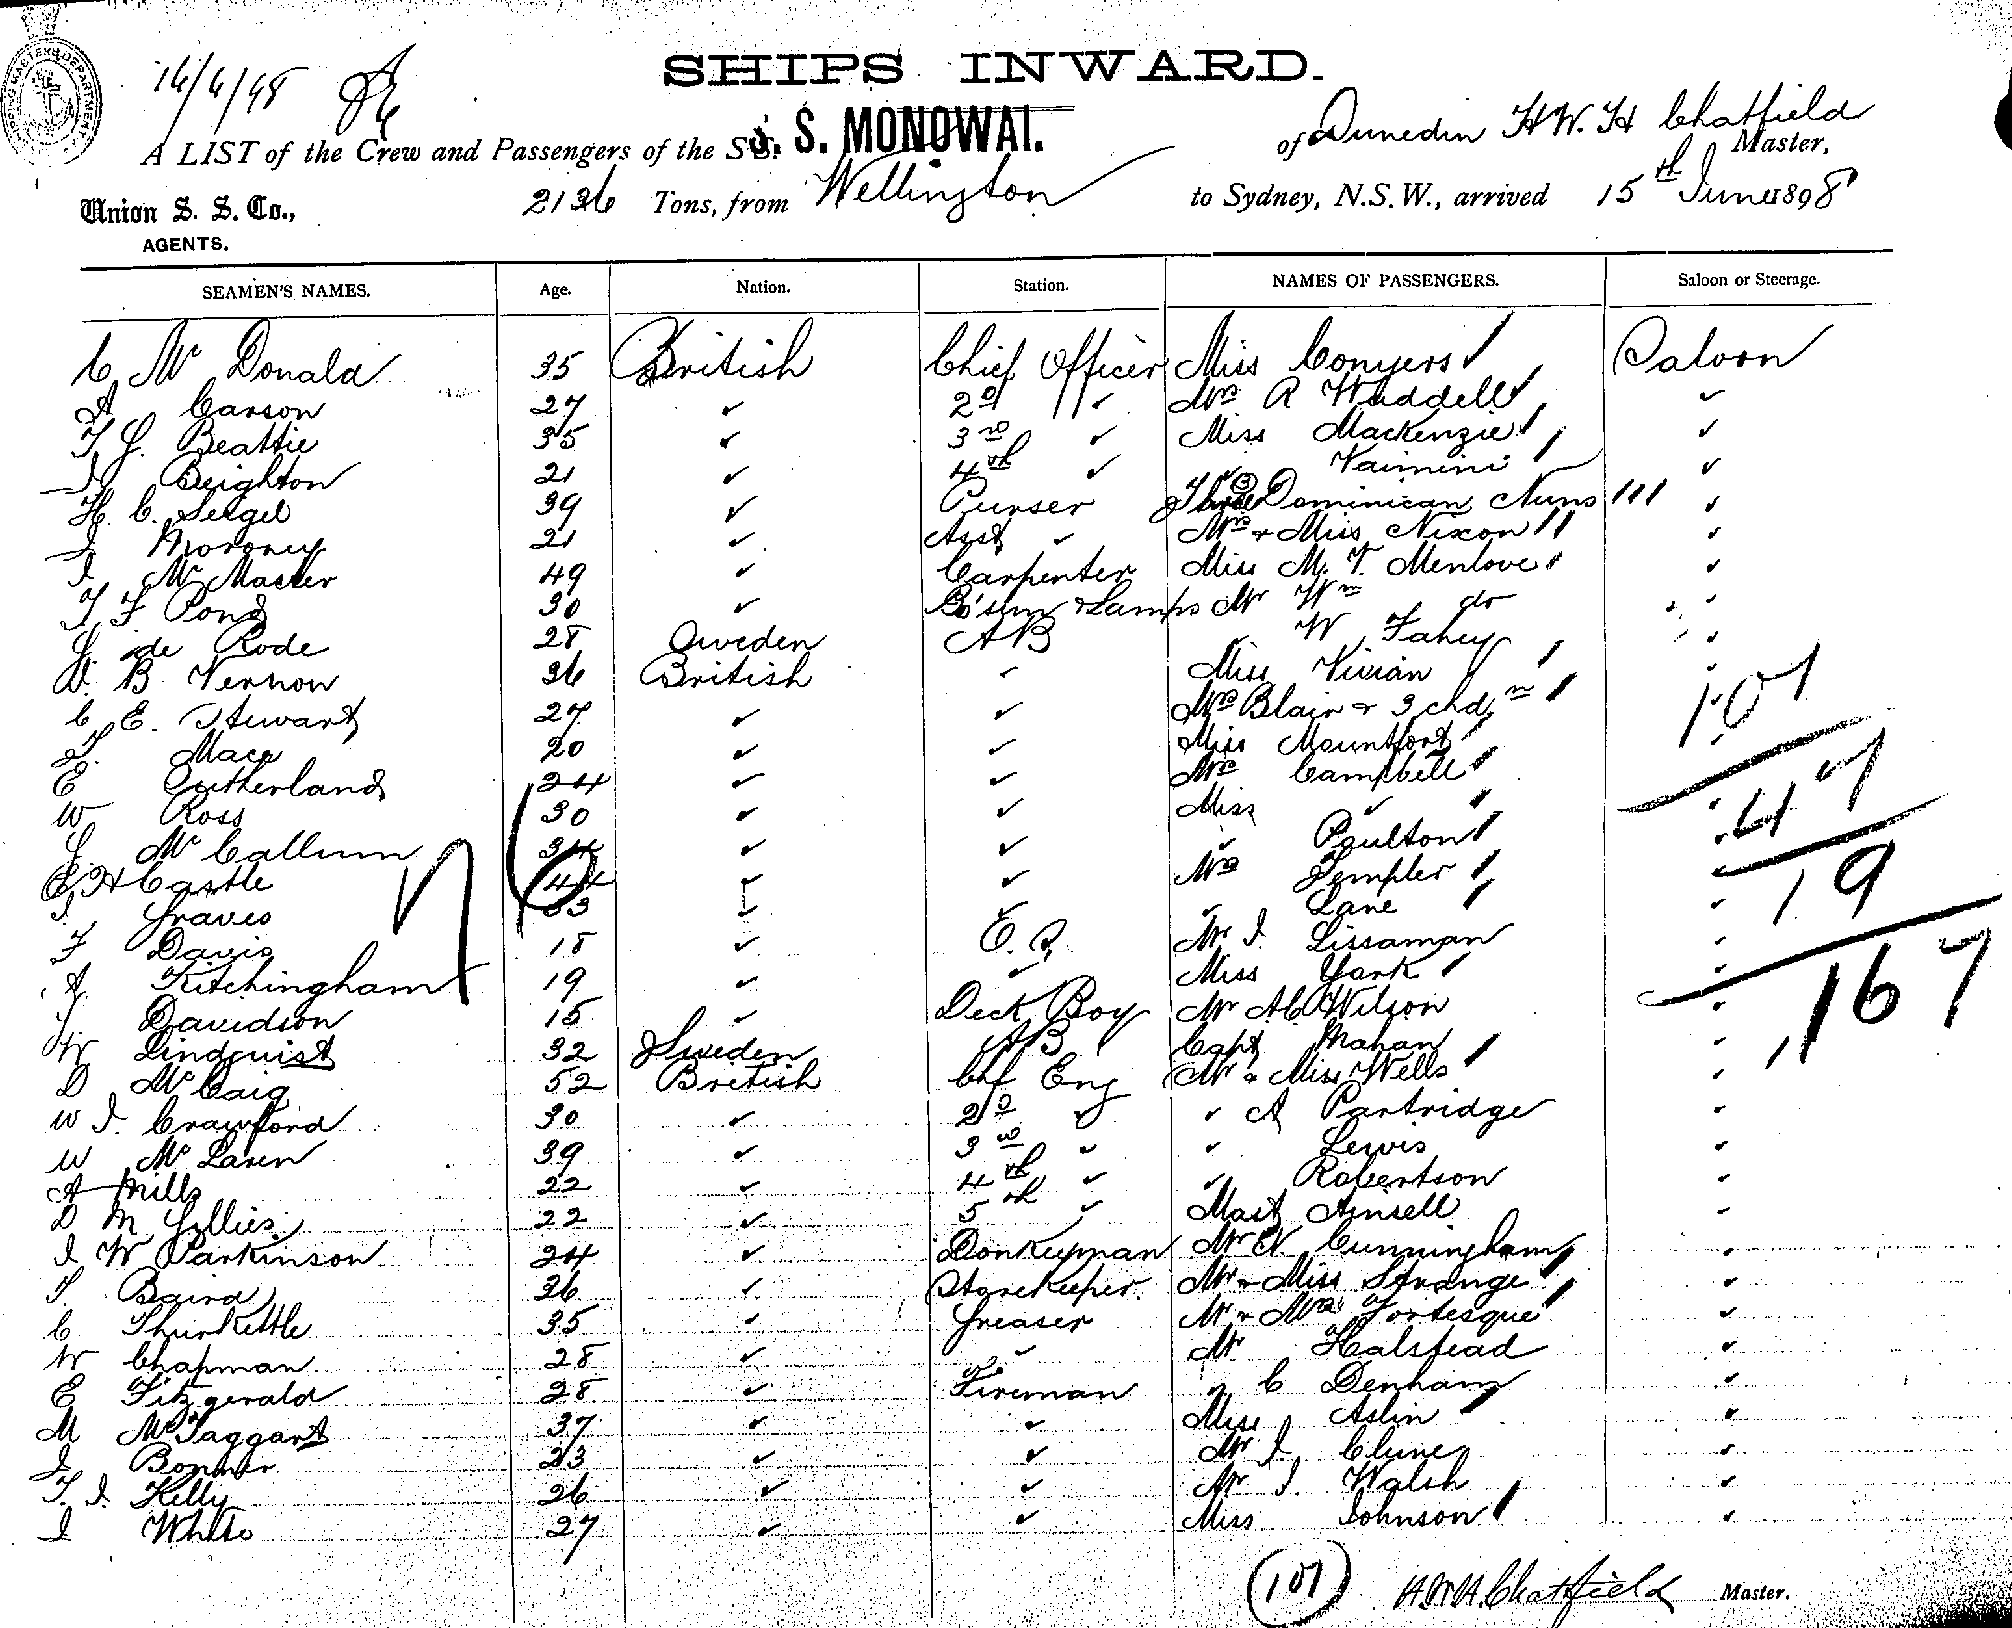 16/6/98
SHIPS INWARD.
A LIST of the Crew and Passengers of the SS. S. S. MONOWAI. of Dunedin H W. H Chatfield Master,
Union S. S. Co., AGENTS. 2136 Tons, from Wellington to Sydney, N.S.W., arrived 15th June 1898
SEAMEN'S NAMES. Age. Nation. Station. NAMES OF PASSENGERS. Saloon or Steerage.
C Mc Donald 35 British Chief Officer Miss Conyers Saloon
A Carson 27 ✓ 2d ✓ Mrs R Waddell ✓
T G. Beattie 35 ✓ 3rd ✓ Miss Mackenzie ✓
J Beighton 21 ✓ 4th ✓ ✓ Vaimini ✓
H. C. Seegel 39 ✓ Purser Three (3) Dominican Nuns ✓
J Moroney 21 ✓ Asst ✓ Mrs + Miss Nixon ✓
J Mc Master 49 ✓ Carpenter Miss M. T. Menlove ✓
T F Pond 30 ✓ Bo'sun & Lamps Mr Wm do ✓
G de Rode 28 Sweden AB ✓ W Fahey ✓
W. B Vernon 36 British ✓ Miss Vivian ✓
C E. Stewart 27 ✓ ✓ Mrs Blair + 3 chdn 101
T. Mace 20 ✓ ✓ Miss Mountfort
E Sutherland 24 ✓ ✓ Mrs Campbell 47
W Ross 30 ✓ ✓ Miss ✓
G. Mc Callum 34 ✓ ✓ ✓ Poulton
H Castle 44 ✓ ✓ Mrs Templer 19
J. Graves 33 ✓ ✓ ✓ Lane ✓
F Davis 18 ✓ O.S. Mr J. Lissaman ✓
A. Kitchingham 19 ✓ ✓ Miss York 167
J Davidson 15 ✓ Deck Boy Mr A C Wilson ✓
W Lindquist 32 Sweden AB Capt Mahan ✓
D Mc Caig 52 British Chf Eng Mr & Miss Wells ✓
W J. Crawford 30 ✓ 2d ✓ ✓ A Partridge ✓
W Mc Laren 39 ✓ 3rd ✓ ✓ Lewis ✓
A Mills 22 ✓ 4th ✓ ✓ Robertson ✓
D M Gillies 22 ✓ 5th ✓ Mast Ansell ✓
J W Parkinson 24 ✓ Donkeyman Mr N Cunningham ✓
T. Baird 36 ✓ Storekeeper Mr & Miss Strange ✓
C Thurkettle 35 ✓ Greaser Mr & Mrs Fortesque ✓
W Chapman 28 ✓ ✓ Mr Halstead ✓
E Fitzgerald 28 ✓ Fireman " C Denham ✓
M McTaggart 37 ✓ ✓ Miss Aslin ✓
J Bonner 23 ✓ ✓ Mr J. Clune ✓
T. J. Kelly 26 ✓ ✓ Mr J. Walsh ✓
J White 27 ✓ ✓ Miss Johnson ✓
(101) H W H Chatfield Master.